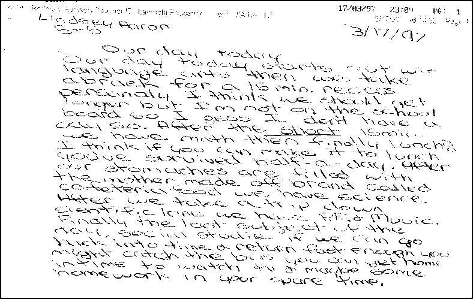 17/03/97 23:04 PG: 1
Lindsey Aaron
5-D
3/17/97
Our day today
Our day today starts out wit
language arts then we take
a break for a 15 min. recess
personaly I think we should get
longer but I'm not on the school
board so I gess I don't have a
say so. After the short 15min
we have math then finally lunch!
I think if you can make it to lunch
you've survived half a day. After
our stomaches are filled with
the mother made off brand called
cafeteria food we have science.
After we take a trip down
scientific lane we have P.E or Music.
Finally the last subject of the
day, social studies if we can go
back into time & return fast enough you
might catch the bus you can get home
in time to watch tv & maybe some
homework in your spare time.